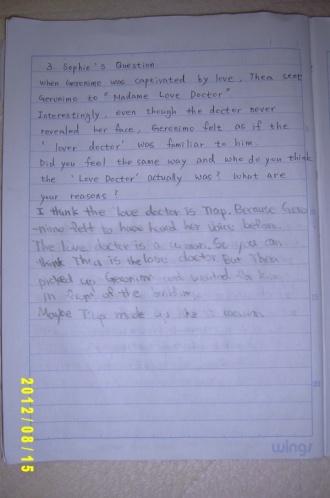 3. Sophie's Question.
When Geronimo was captivated by love, Thea sent
Geronimo to "Madame Love Doctor"
Interestingly, even though the doctor never
revealed her face, Geronimo felt as if the
'lover doctor' was familiar to him.
Did you feel the same way and who do you think
the 'Love Doctor' actually was? What are
your reasons?
I think the love doctor is Trap. Because Gero
-nimo felt to have heard her voice before.
The love doctor is a woman. So you can
think Thea is the love doctor. But Thea
picked up Geronimo and waited for him
in front of the building.
Maybe Trap made up like a woman.
wings
2012/08/15